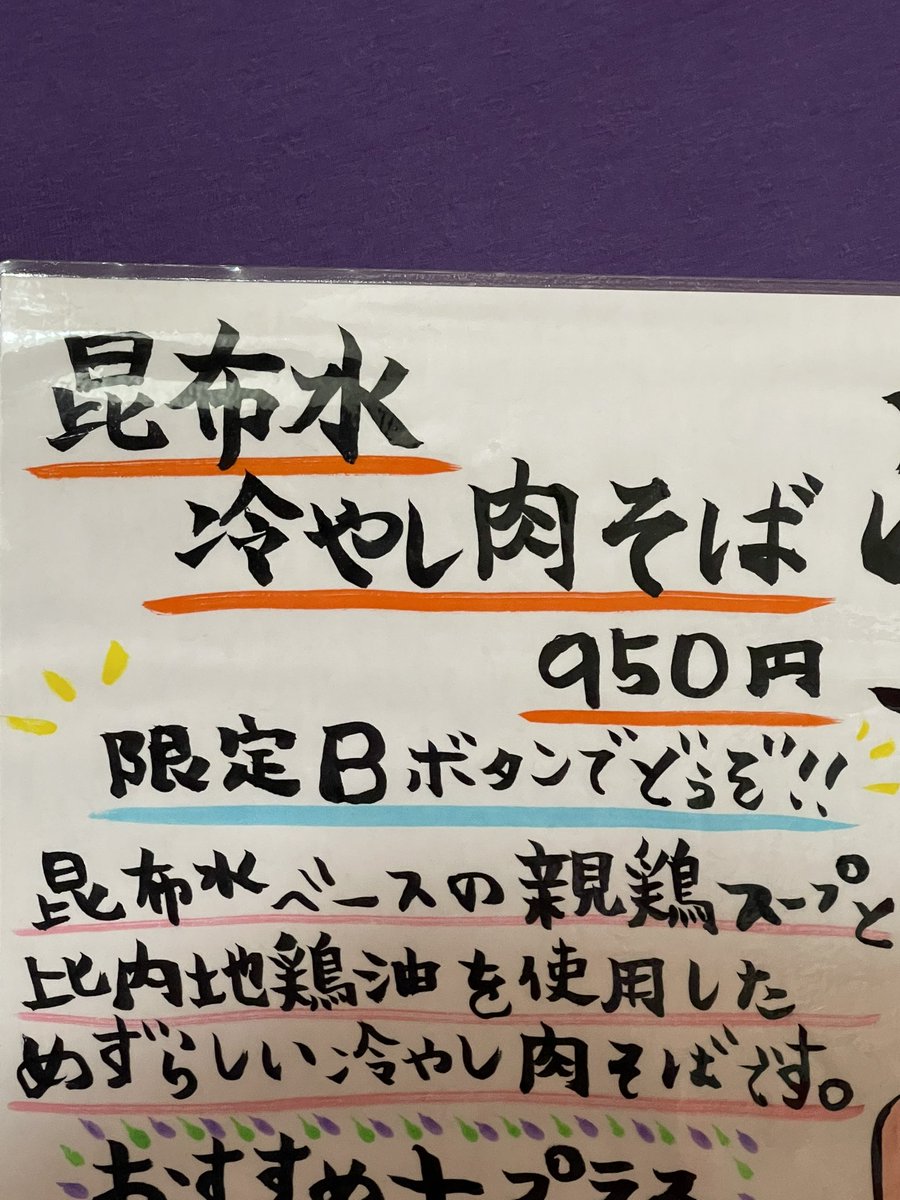 昆布水
冷やし肉そば
950円
限定Bボタンでどうぞ!!
昆布水ベースの親鶏スープと
比内地鶏油を使用した
めずらしい冷やし肉そばです。
おすすめ